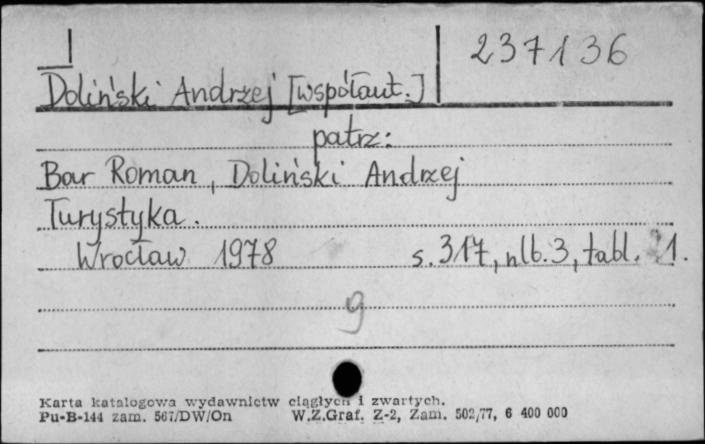 237136
Doliński Andrzej [współaut.]
patrz:
Bar Roman, Doliński Andrzej
Turystyka.
Wrocław 1978 s. 317, nlb. 3, tabl. 1.
9
Karta katalogowa wydawnictw ciągłych i zwartych.
Pu-B-144 zam. 567/DW/On W.Z.Graf. Z-2, Zam. 502/77, 6 400 000